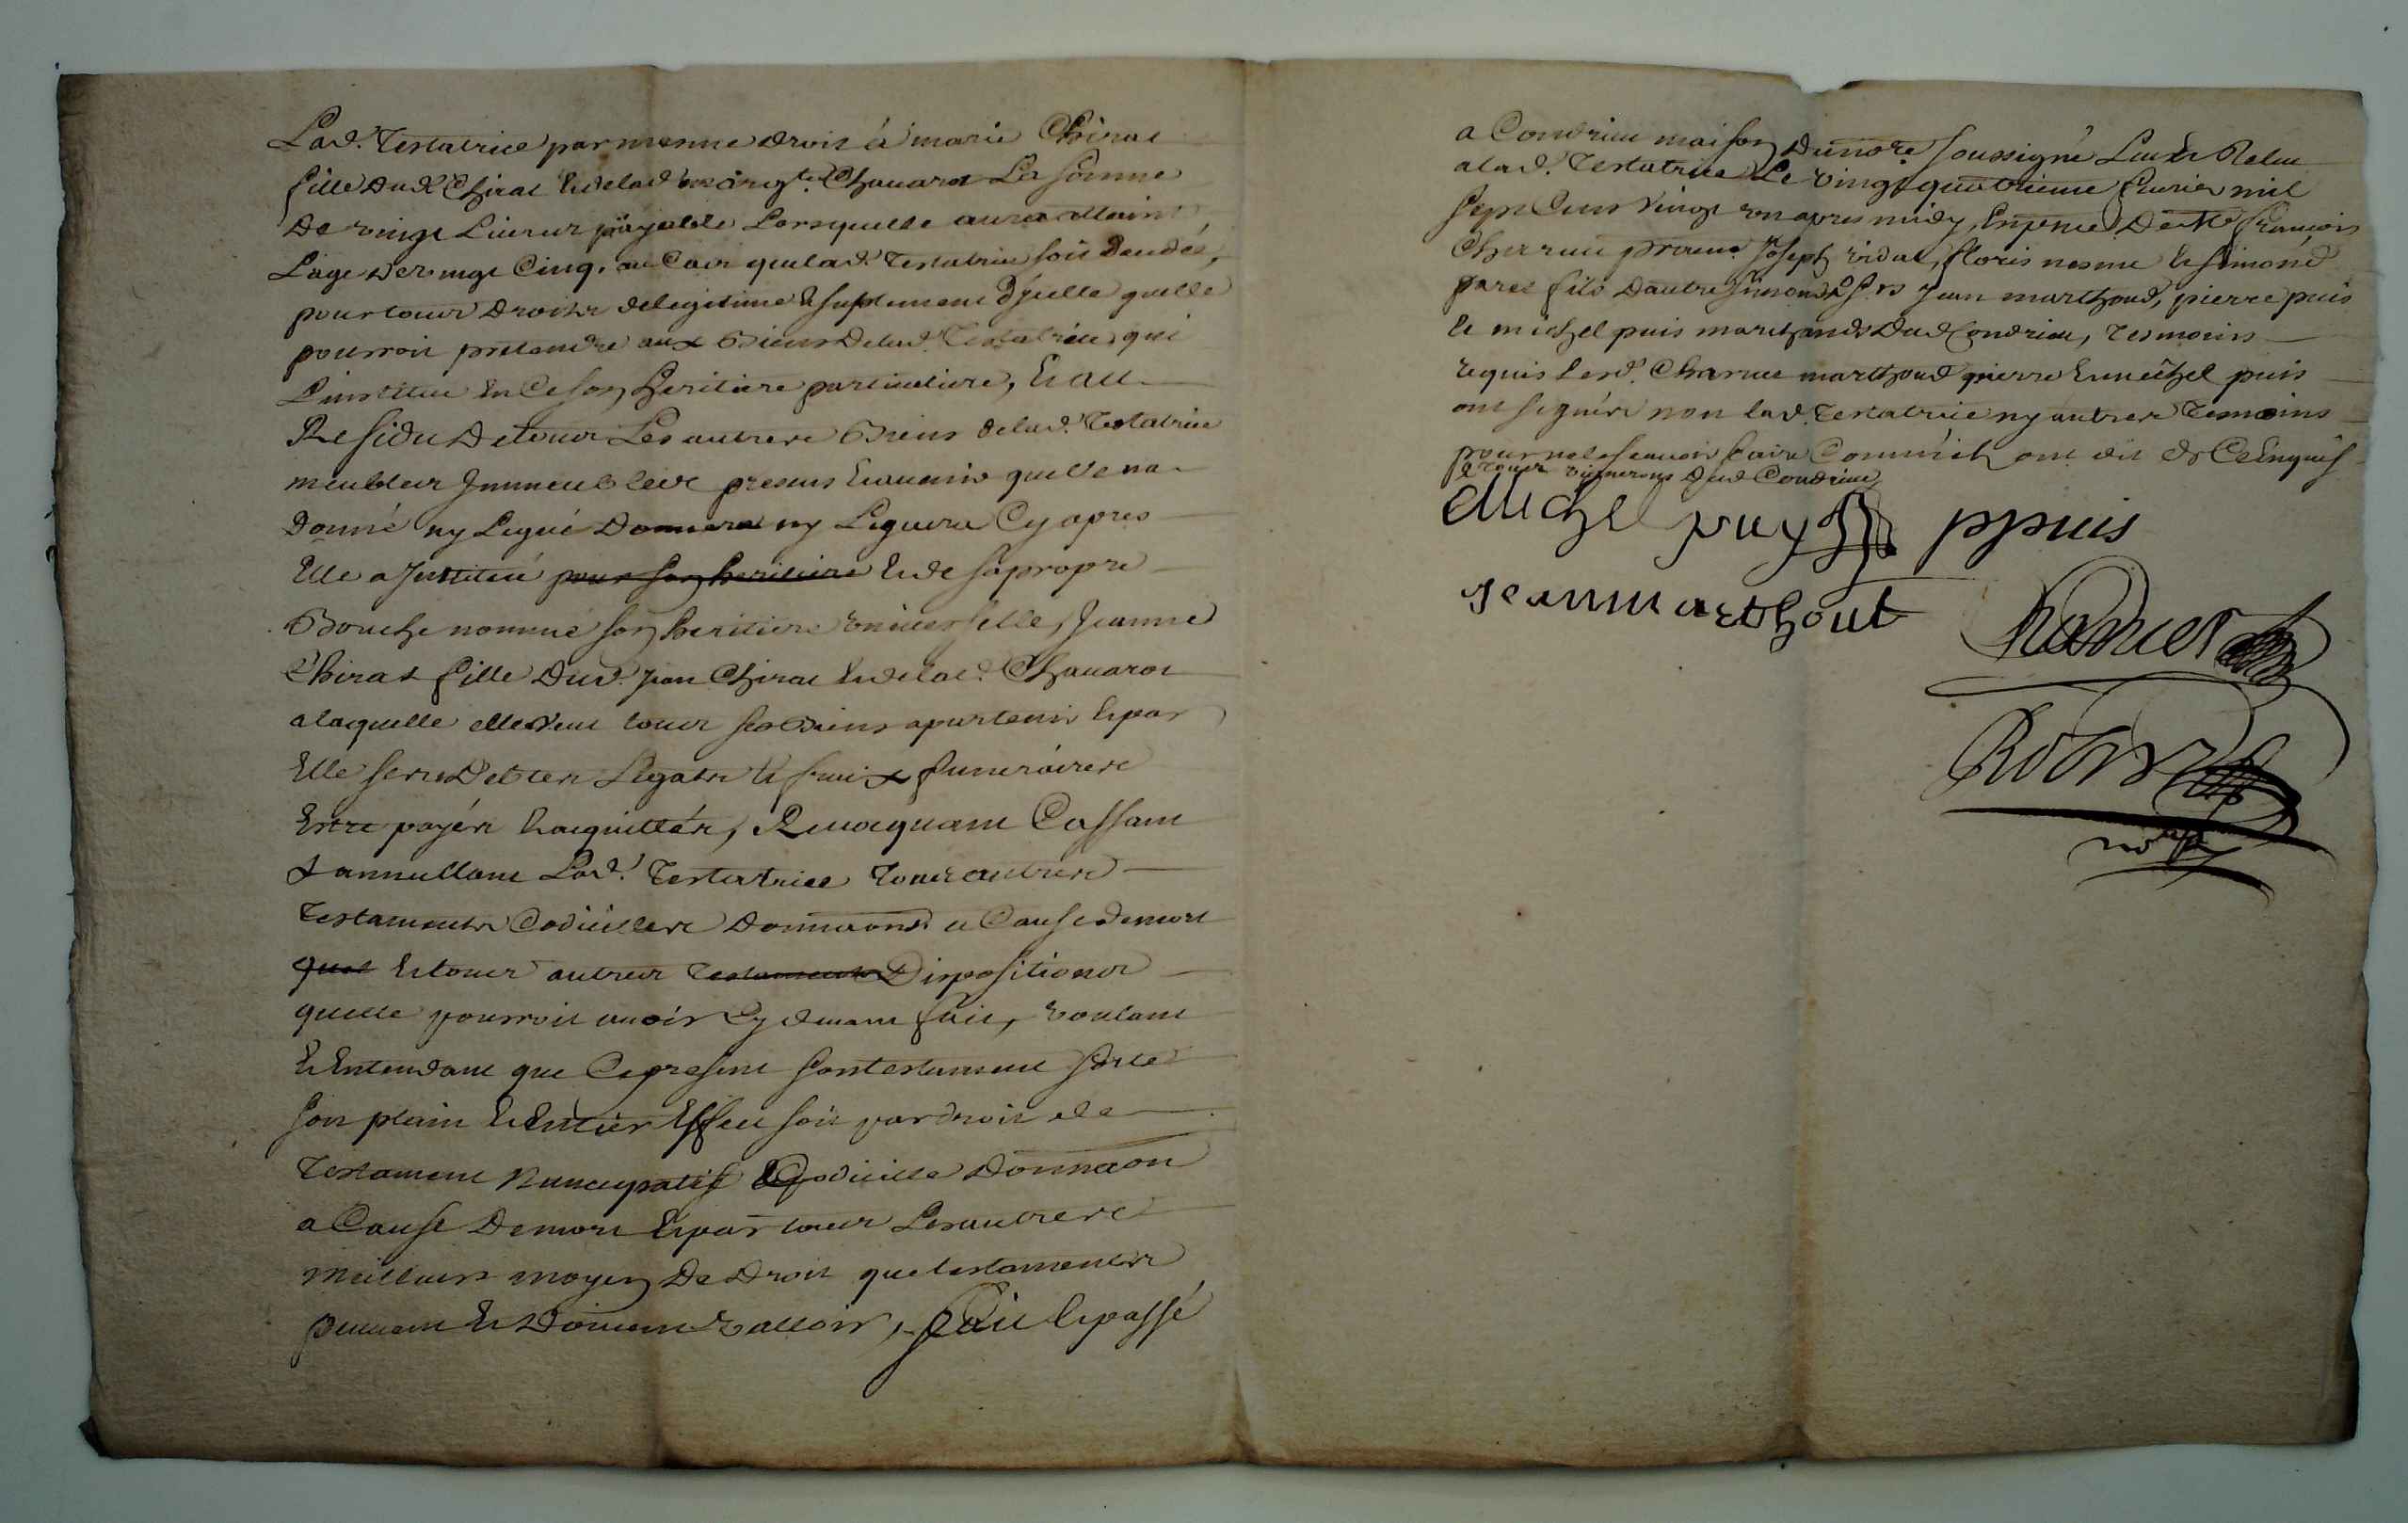 Lad. Testatrice par mesme droit à marie Chirat
fille dud. Chirat et de lad. margte. Chauarot La somme
de vingt Liures päyable Lorsquelle aura attaint
L'age de vingt Cinq. au Cas que lad. Testatrice soit decedée,
pour tous droits de legitime et suplement d'jcelle quelle
pourroit pretendre aux Biens de lad. Testatrice qui
L'institue en Ce son heritiere particuliere, Et au
Residu de tous Les autres Biens de lad. Testatrice
meubles Jmmeubles presens et auenir quelle na
donné ny Legué donnera ny Leguera Cy apres
Elle a Jnstitué pour son heritiere et de sa propre
Bouche nommé son heritiere vniuerselle, Jeanne
Chirat fille dud. Jean Chirat et de lad. Chauarot
a laquelle elle veut tous ses Biens apartenir et par
Elle ses debtes Legats et fraix funeraires
Estre payés et acquittés, Reuoquant Cassant
& annullant Lad. Testatrice tous autres
Testaments Codicilles donnaons. a Cause de mort
quel et tous autres testaments Dispositions
quelle pourroit auoir Cy deuant fait, voulant
Et Entendant que Ce present son testament sorte
son plain et Entier Effect soit par droit de
Testament Nuncupatif Codicille donnaon
a Cause de mort et par tous Les autres
meilleurs moyens de droit que testaments
peuuent et doiuent valloir, fait et passé
a Condrieu maison du nore. soussigné Leu et Releu
a lad. Testatrice Le vingt quatrieme feurier mil
sept Cens vingt vn apres midy, En pnce. de Me françois
Charuet procur. Joseph vidal, floris nesme et simond
paret fils d'autre simond Srs Jean marthoud, pierre puis
et michel puis marchands dud Condrieu, tesmoins
requis Lesd. Charuet marthoud pierre et michel puis
ont signés non lad. Testatrice ny autres temoins
pour ne le scauoir faire Comm'ils ont dit de Ce Enquis
vignerons dud Condrieu
Michel puy ppuis
jeanmarthout
Charuet